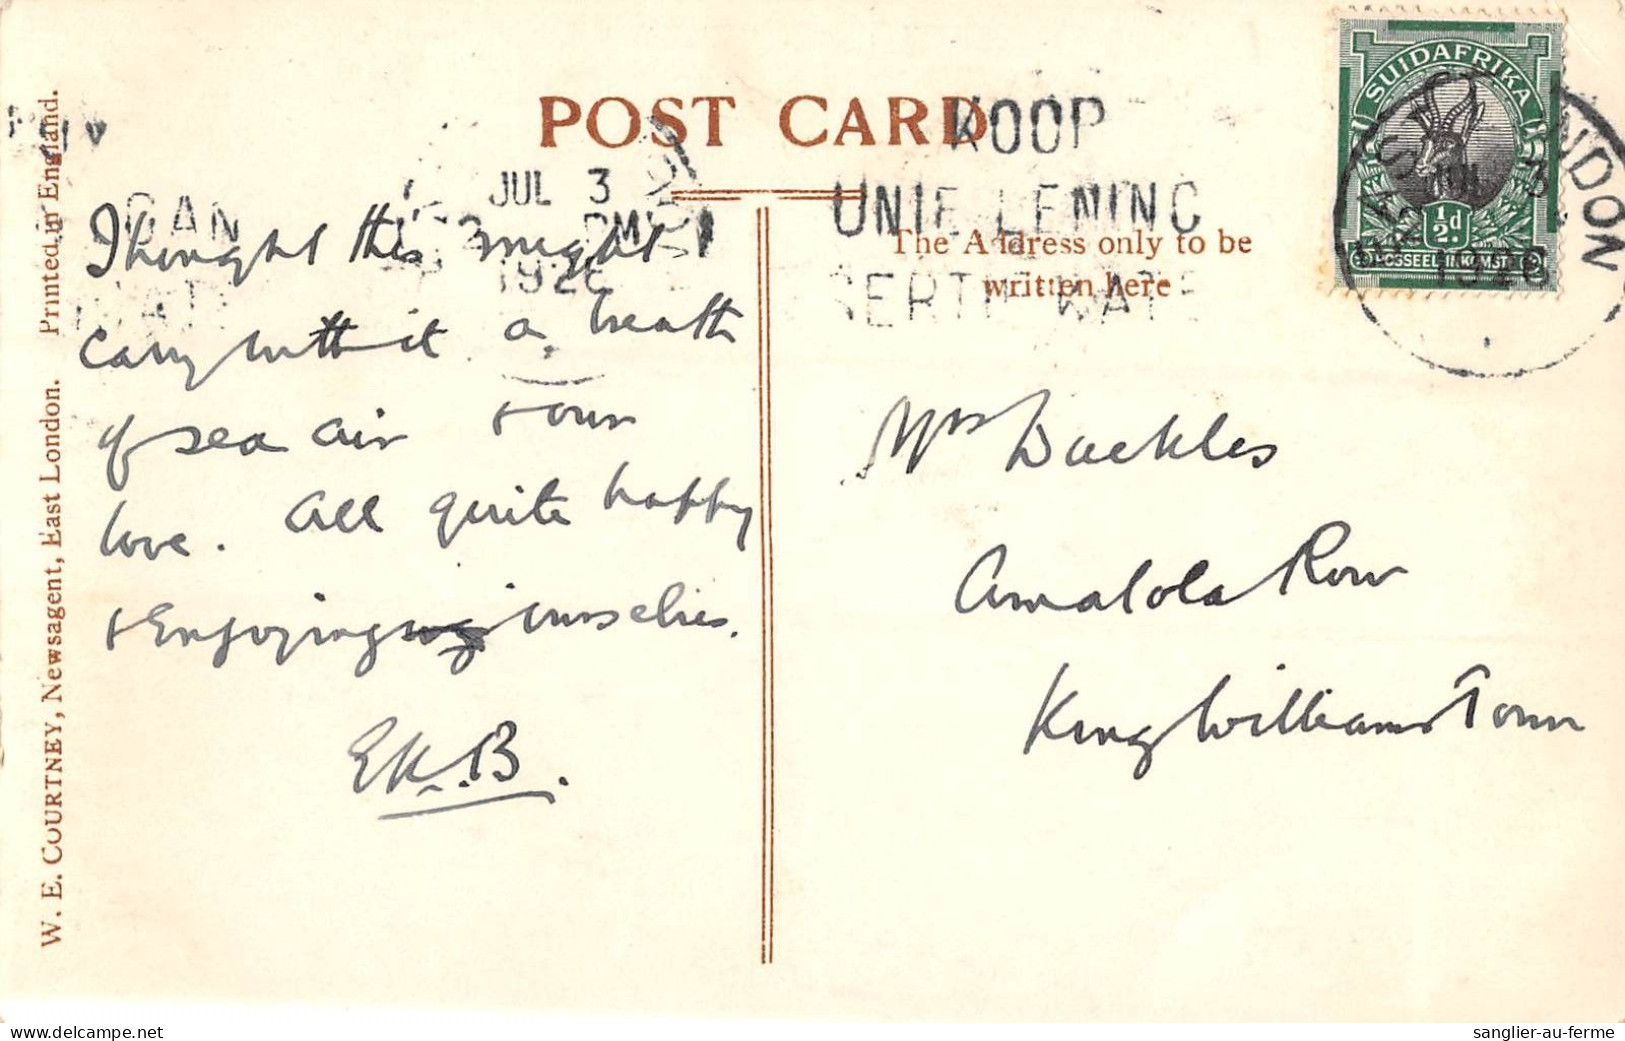 POST CARD
KOOP
UNIE LENING
SERTIFIKATE
JUL 3
PM
1926
The Address only to be
written here
SUIDAFRIKA
½d.
POSSEEL INKOMST
EAST LONDON
JUL 3
1926
I thought this might
carry with it a breath
of sea air & our
love. All quite happy
& Enjoying ourselves.
E.K.B.
Mrs Duckles
Amatola Row
King Williams Town
W. E. COURTNEY, Newsagent, East London. Printed in England.
delcampe.net
sanglier-au-ferme